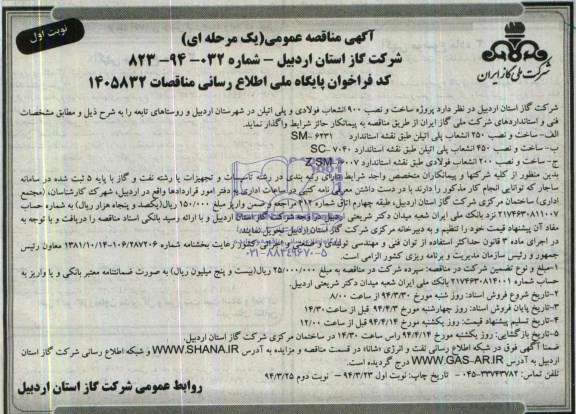 نوبت اول
آگهی مناقصه عمومی(یک مرحله ای)
شرکت گاز استان اردبیل – شماره ۰۳۲- ۹۴- ۸۲۳
کد فراخوان پایگاه ملی اطلاع رسانی مناقصات ۱۴۰۵۸۳۲
شرکت ملی گاز ایران
شرکت گاز استان اردبیل در نظر دارد پروژه ساخت و نصب ۹۰۰ انشعاب فولادی و پلی اتیلن در شهرستان اردبیل و روستاهای تابعه را به شرح ذیل و مطابق مشخصات
فنی و استانداردهای شرکت ملی گاز ایران از طریق مناقصه به پیمانکار حائز شرایط واگذار نماید.
الف- ساخت و نصب ۲۵۰ انشعاب پلی اتیلن طبق نقشه استاندارد SM- ۶۲۳۱
ب- ساخت و نصب ۴۵۰ انشعاب پلی اتیلن طبق نقشه استاندارد SC- ۷۰۴۰
ج- ساخت و نصب ۲۰۰ انشعاب فولادی طبق نقشه استاندارد Z SM- ۶۰۰۷
بدین منظور از کلیه شرکتها و پیمانکاران متخصص واجد شرایط دارای رتبه بندی در رشته تاسیسات و تجهیزات یا رشته نفت و گاز با پایه ۵ ثبت شده در سامانه
ساجار که توانایی انجام کار مذکور را دارند با در دست داشتن معرفی نامه کتبی در ساعات اداری به دفتر امور قراردادها واقع در اردبیل، شهرک کارشناسان، (مجتمع
اداری) ساختمان مرکزی شرکت گاز استان اردبیل، طبقه چهارم اتاق شماره ۴۱۲ مراجعه و ضمن واریز مبلغ ۱۵۰/۰۰۰ ریال(یکصد و پنجاه هزار ریال) به شماره حساب
۲۱۷۴۶۳۰۸۱۱۰۰۷ نزد بانک ملی ایران شعبه میدان دکتر شریعتی اردبیل در وجه شرکت گاز استان اردبیل و با ارائه رسید بانکی اسناد مناقصه را دریافت و با توجه به
مفاد آن پیشنهاد قیمت خود را تنظیم و به دبیرخانه مرکزی شرکت گاز استان اردبیل تحویل نمایند.
در اجرای ماده ۳ قانون حداکثر استفاده از توان فنی و مهندسی تولیدی و صنعتی و اجرایی کشور رعایت بخشنامه شماره ۱۰۶/۲۸۷۲۰۶-۱۳۸۱/۱۰/۱۴ معاون رئیس
جمهور و رئیس سازمان مدیریت و برنامه ریزی کشور الزامی است.
۱-مبلغ و نوع تضمین شرکت در مناقصه: سپرده شرکت در مناقصه به مبلغ ۲۵/۰۰۰/۰۰۰ ریال(بیست و پنج میلیون ریال) به صورت ضمانتنامه معتبر بانکی و یا واریز به
حساب شماره ۲۱۷۴۶۳۰۸۱۴۰۰۱ بانک ملی ایران شعبه میدان دکتر شریعتی اردبیل.
۲-تاریخ شروع فروش اسناد: روز شنبه مورخ ۹۴/۳/۳۰ از ساعت ۸/۰۰
۳-تاریخ پایان فروش اسناد: روز چهارشنبه مورخ ۹۴/۴/۳ قبل از ساعت ۱۴/۳۰
۴-تاریخ تسلیم پیشنهاد قیمت: روز یکشنبه مورخ ۹۴/۴/۱۴ قبل از ساعت ۱۲/۰۰
۵-تاریخ بازگشایی: روز یکشنبه مورخ ۹۴/۴/۱۴ راس ساعت ۱۴/۳۰ در ساختمان مرکزی شرکت گاز استان اردبیل.
ضمنا آگهی فوق در شبکه اطلاع رسانی نفت و انرژی «شانا» در قسمت مناقصه و مزایده به آدرس WWW.SHANA.IR و شبکه اطلاع رسانی شرکت گاز استان
اردبیل به آدرس WWW.GAS-AR.IR درج گردیده است.
تلفن تماس: ۳۳۷۴۳۷۸۲-۰۴۵ – تاریخ چاپ: نوبت اول ۹۴/۳/۲۳ – نوبت دوم ۹۴/۳/۲۵
روابط عمومی شرکت گاز استان اردبیل
۰۲۱-۸۸۳۴۹۶۷۰-۵